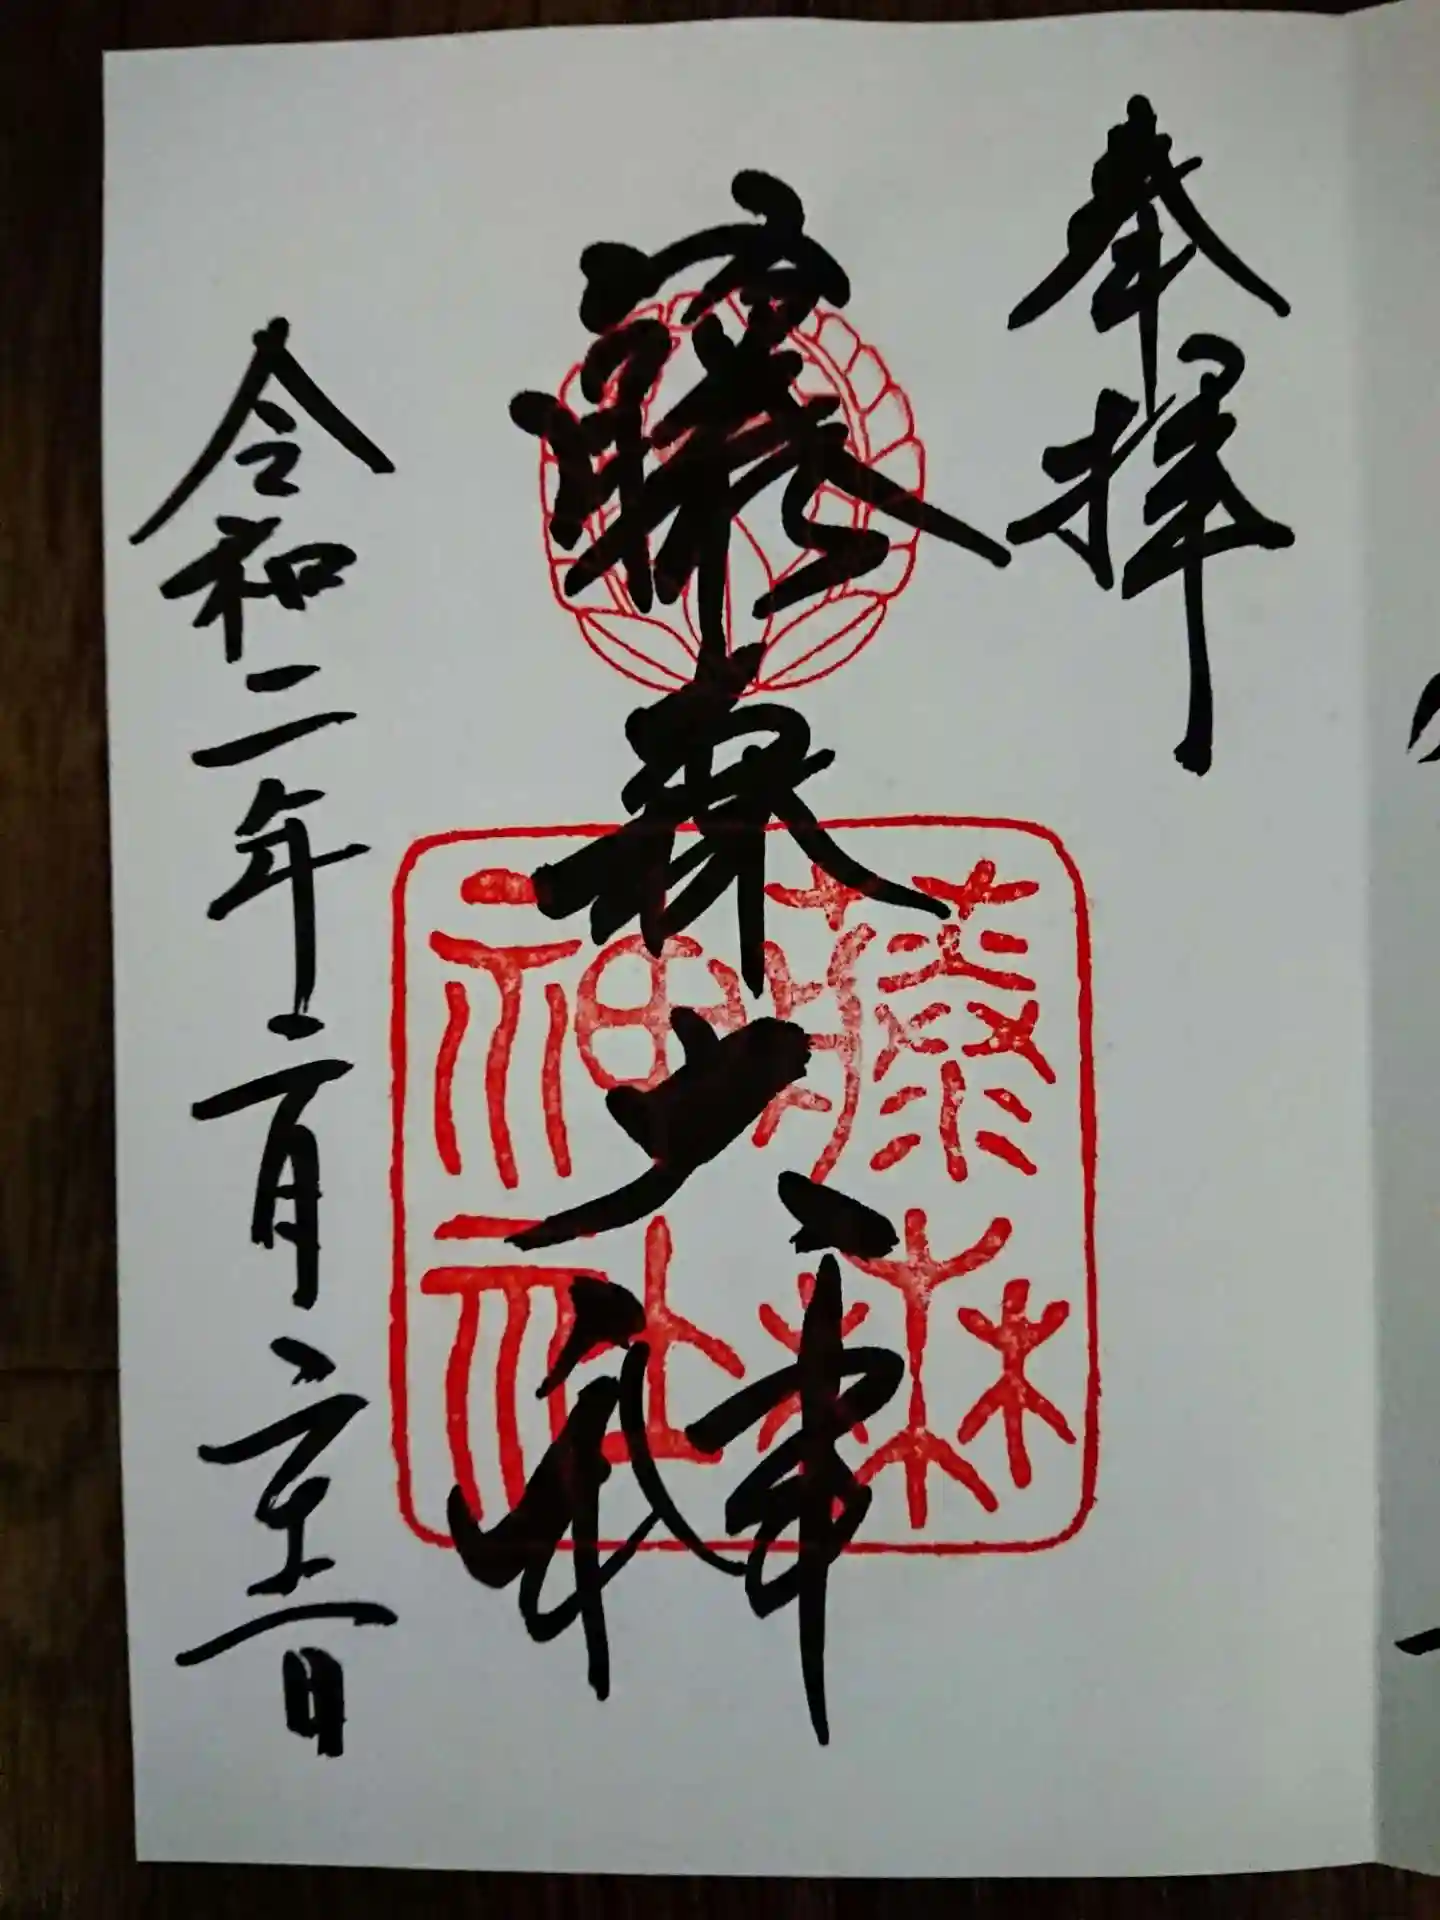 奉拝
藤森大神
令和二年二月二十二日
藤森
神社